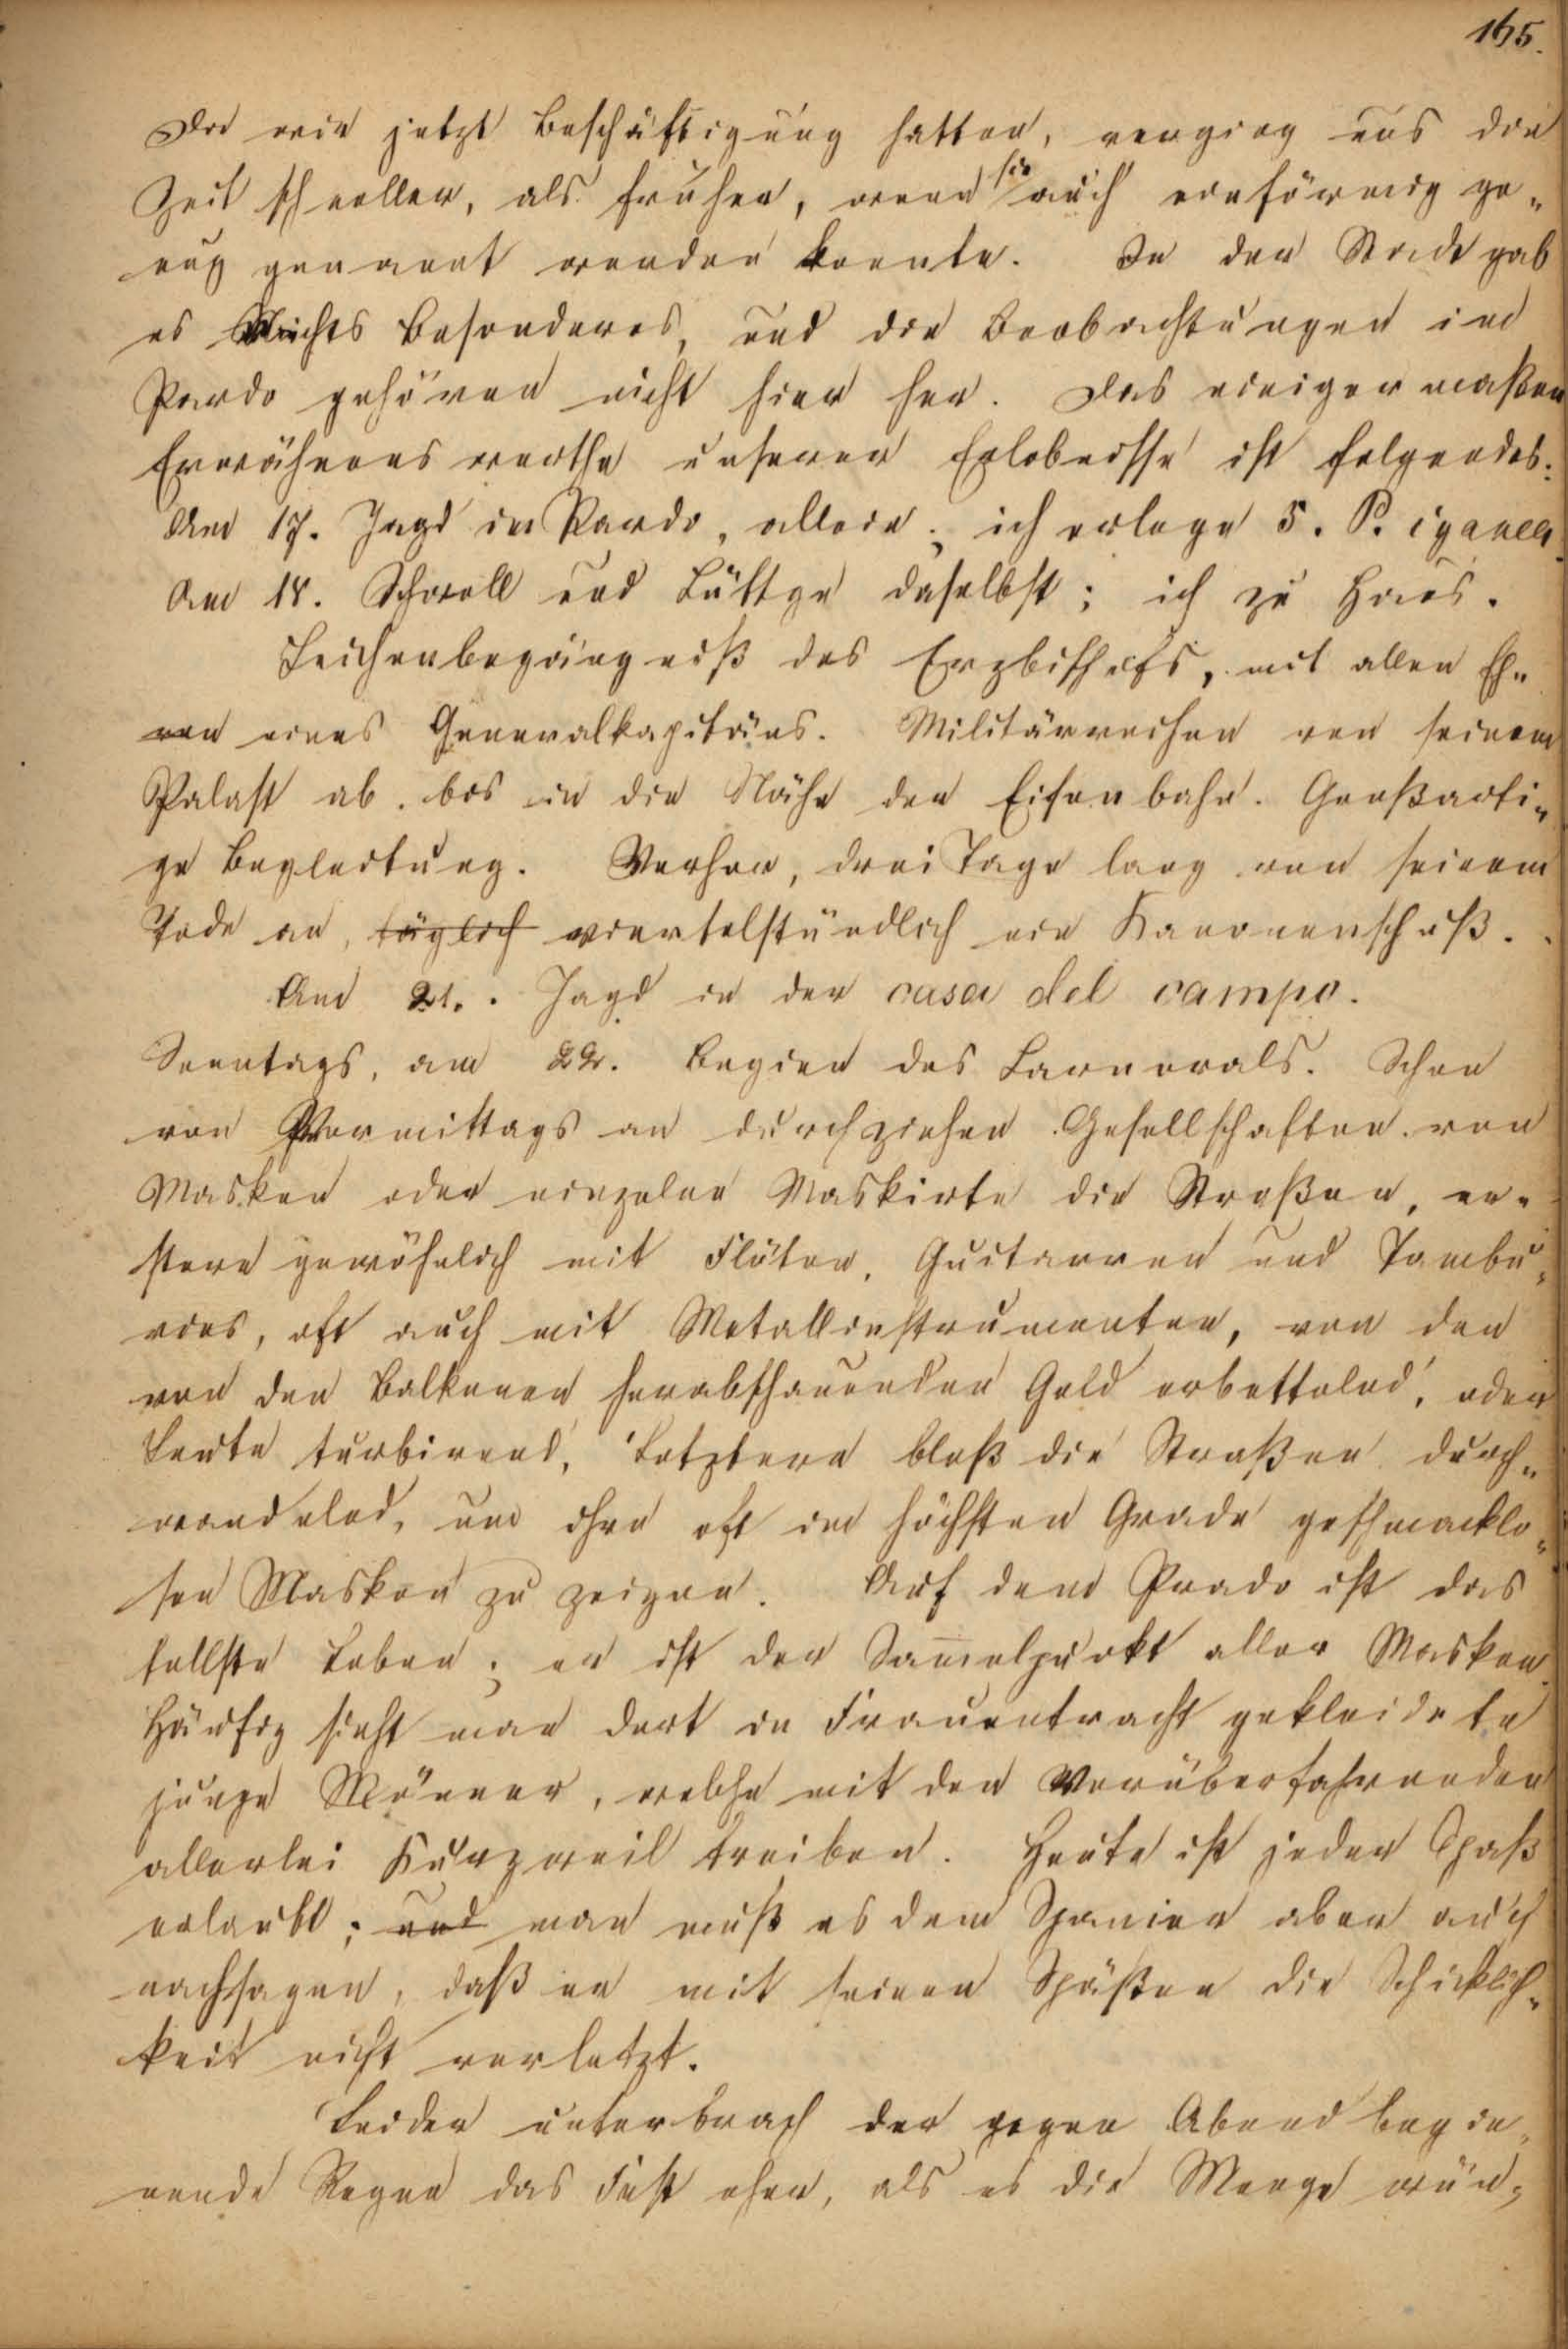 165.
Da wir jetzt Beschäftigung hatten, verging uns die
Zeit schneller, als früher, wenn sie auch einförmig ge„
nug genannt werden konnte. In der Stadt gab
es Nichts Besonderes, und die Beobachtungen im
Pardo gehören nicht hier her. Das einigermaßen
Erwähnenswerthe unserer Erlebnisse ist folgendes:
Am 17. Jagd im Pardo, allein; ich erlege 5. P. cyanea.
Am 18. Schroll und Lüttge daselbst; ich zu Haus.
Leichenbegängniß des Erzbischofs, mit allen Eh„
ren eines Generalkapitäns. Militärreihen von seinem
Palast ab bis in die Nähe der Eisenbahn. Großarti„
ge Begleitung. Vorher, drei Tage lang von seinem
Tode an, täglich viertelstündlich ein Kanonenschuß.
Am 21. Jagd in der casa del campo.
Sonntags, am 22. Beginn des Carnevals. Schon
von Vormittags an durchziehen Gesellschaften von
Masken oder einzelne Maskirte die Straßen, er„
stere gewöhnlich mit Flöten, Guitarren und Tambu„
rins, oft auch mit Metallinstrumenten, von den
von den Balkonen herabschauenden Geld erbettelnd, oder
Leute turbirend, Letztere bloß die Straßen durch„
wandelnd, um ihre oft im höchsten Grade geschmacklo„
sen Masken zu zeigen. Auf dem Prado ist das
tollste Leben; er ist der Samelpunkt aller Masken.
Häufig sieht man dort in Frauentracht gekleidete
junge Männer, welche mit den Vorüberfahrenden
allerlei Kurzweil treiben. Heute ist jeder Spaß
erlaubt; und man muß es dem Spanier aber auch
nachsagen, daß er mit seinen Späßen die Schicklich„
keit nicht verletzt.
Leider unterbrach der gegen Abend begin„
nende Regen das Fest eher, als es die Menge wün„